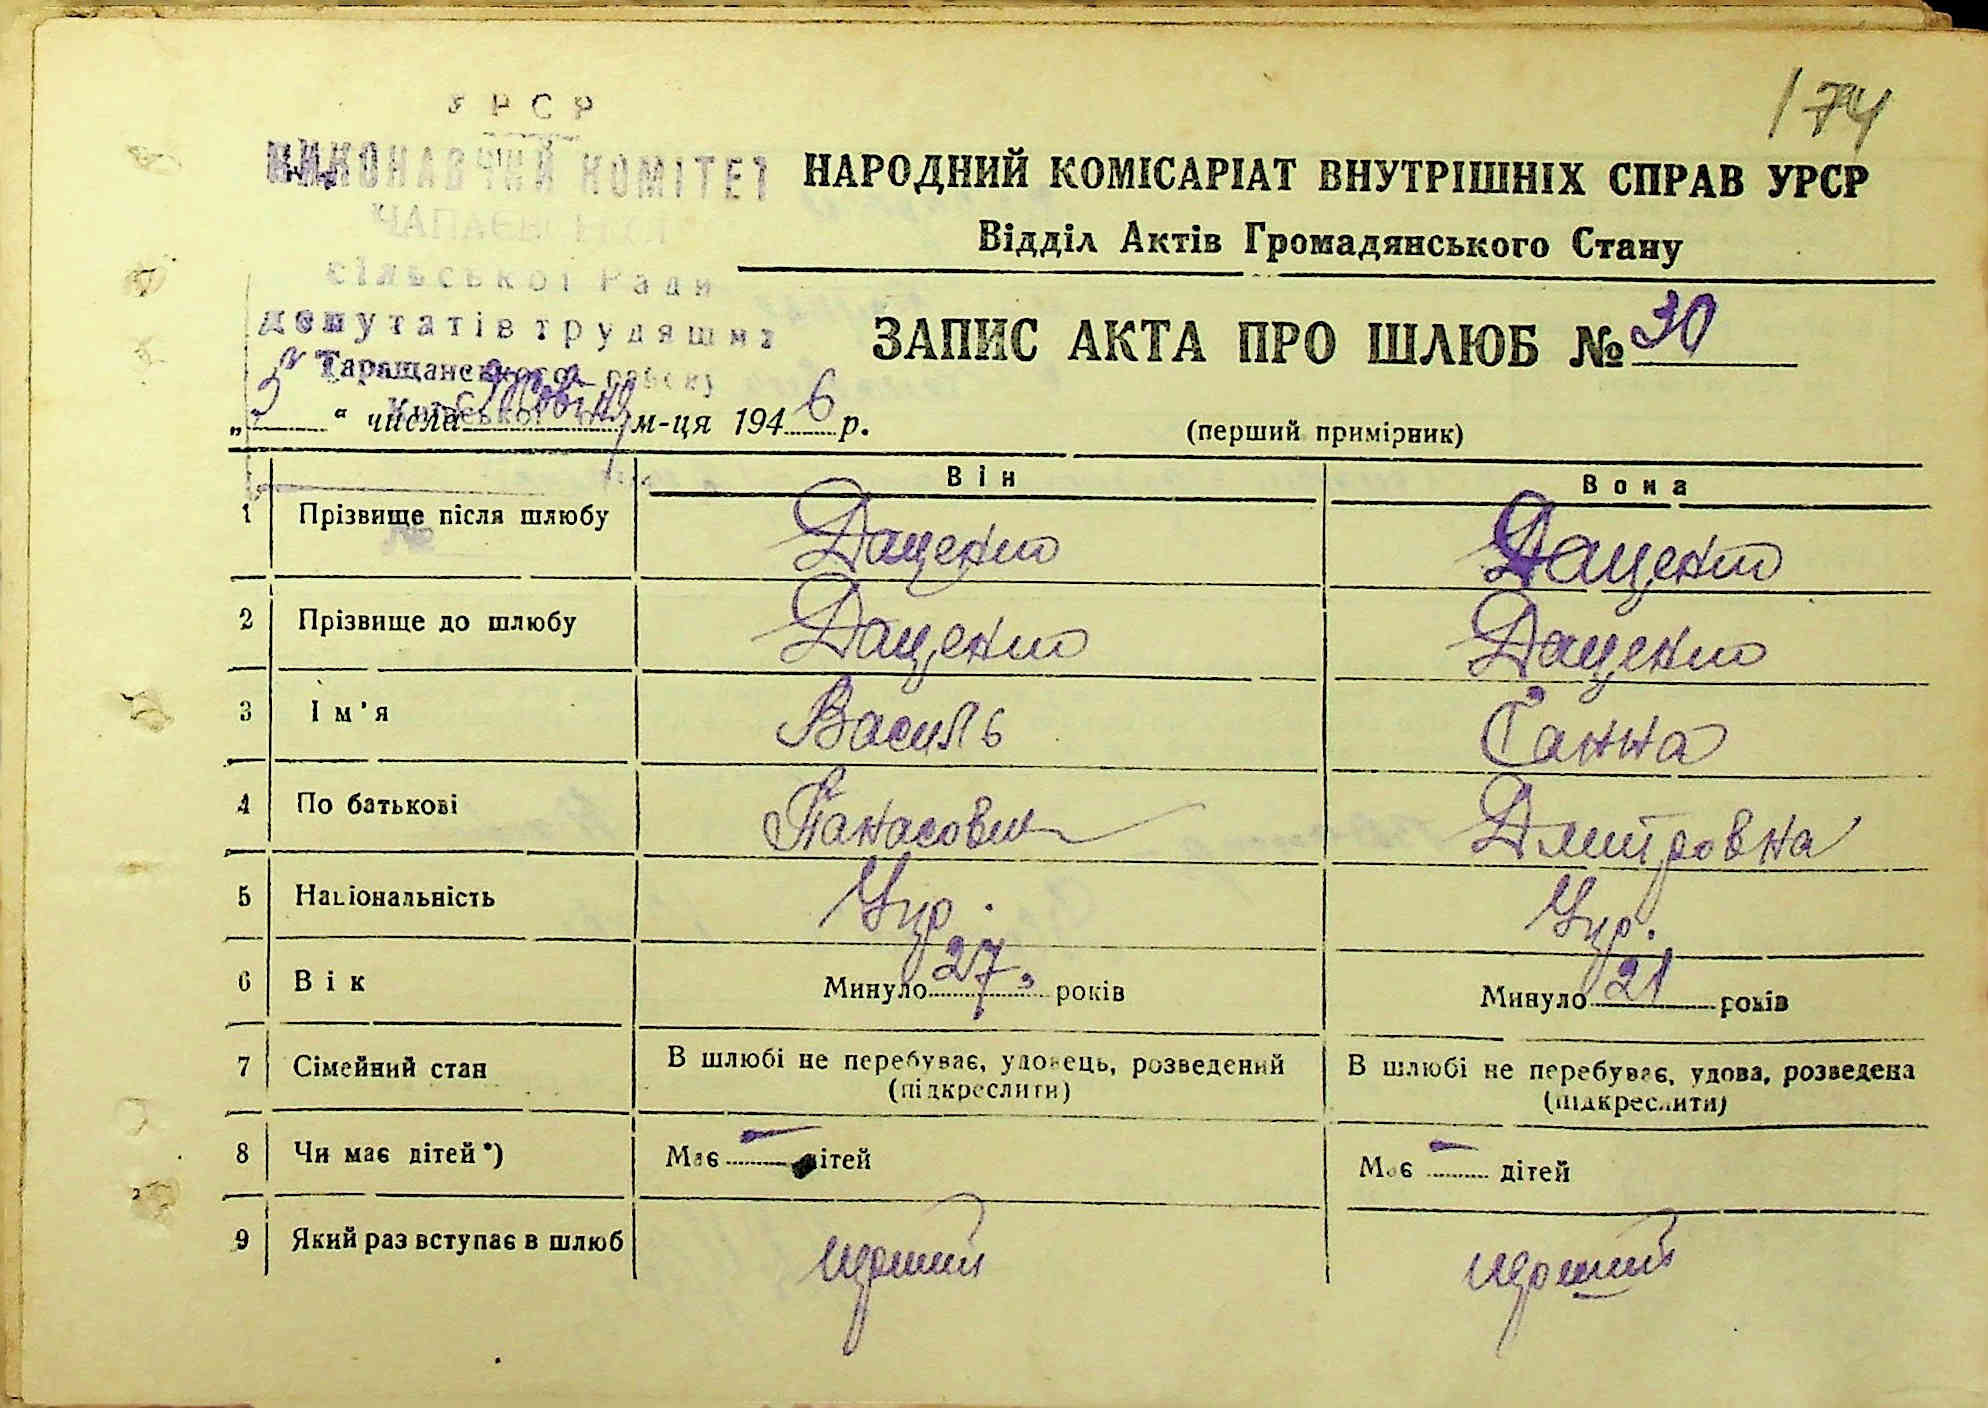 174
УРСР
ВИКОНАВЧИЙ КОМІТЕТ
ЧАПАЄВСЬКОЇ
сільської Ради
депутатів трудящих
Таращанського району
Київської
НАРОДНИЙ КОМІСАРІАТ ВНУТРІШНІХ СПРАВ УРСР
Відділ Актів Громадянського Стану
ЗАПИС АКТА ПРО ШЛЮБ № 30
„ 3 “ числа м-ця 1946 р.
(перший примірник)
Він Вона
1 Прізвище після шлюбу Даценко Даценко
2 Прізвище до шлюбу Даценко Даценко
3 Ім'я Василь Ганна
4 По батькові Панасович Дмитровна
5 Національність Укр. Укр.
6 Вік Минуло 27 років Минуло 21 років
7 Сімейний стан В шлюбі не перебуває, удовець, розведений В шлюбі не перебуває, удова, розведена
(підкреслити) (підкреслити)
8 Чи має дітей*) Має — дітей Має — дітей
9 Який раз вступає в шлюб перший перший